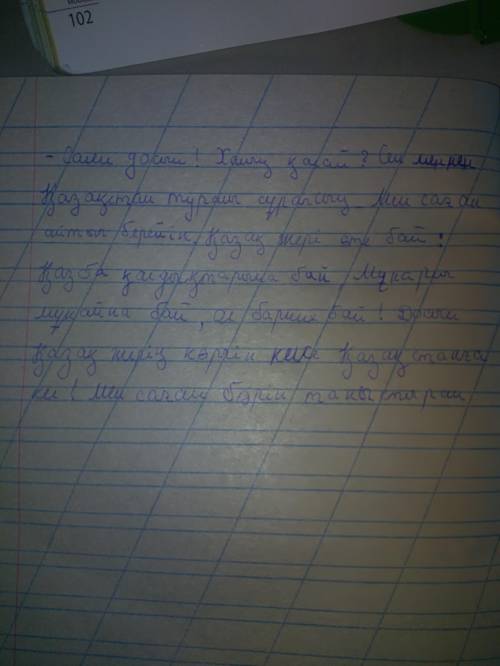 102
- Салем досым! Халың қалай? Сен менен
Қазақстан туралы сурапсың. Мен саған
айтып берейін. Қазақ жері өте бай:
Қазба қалдықтарына бай,
мұнайна бай, ол барине бай! Досым
Қазақ жерің көргін келсе Қазақстанға
кел! Мен саған бәрін таныстырам